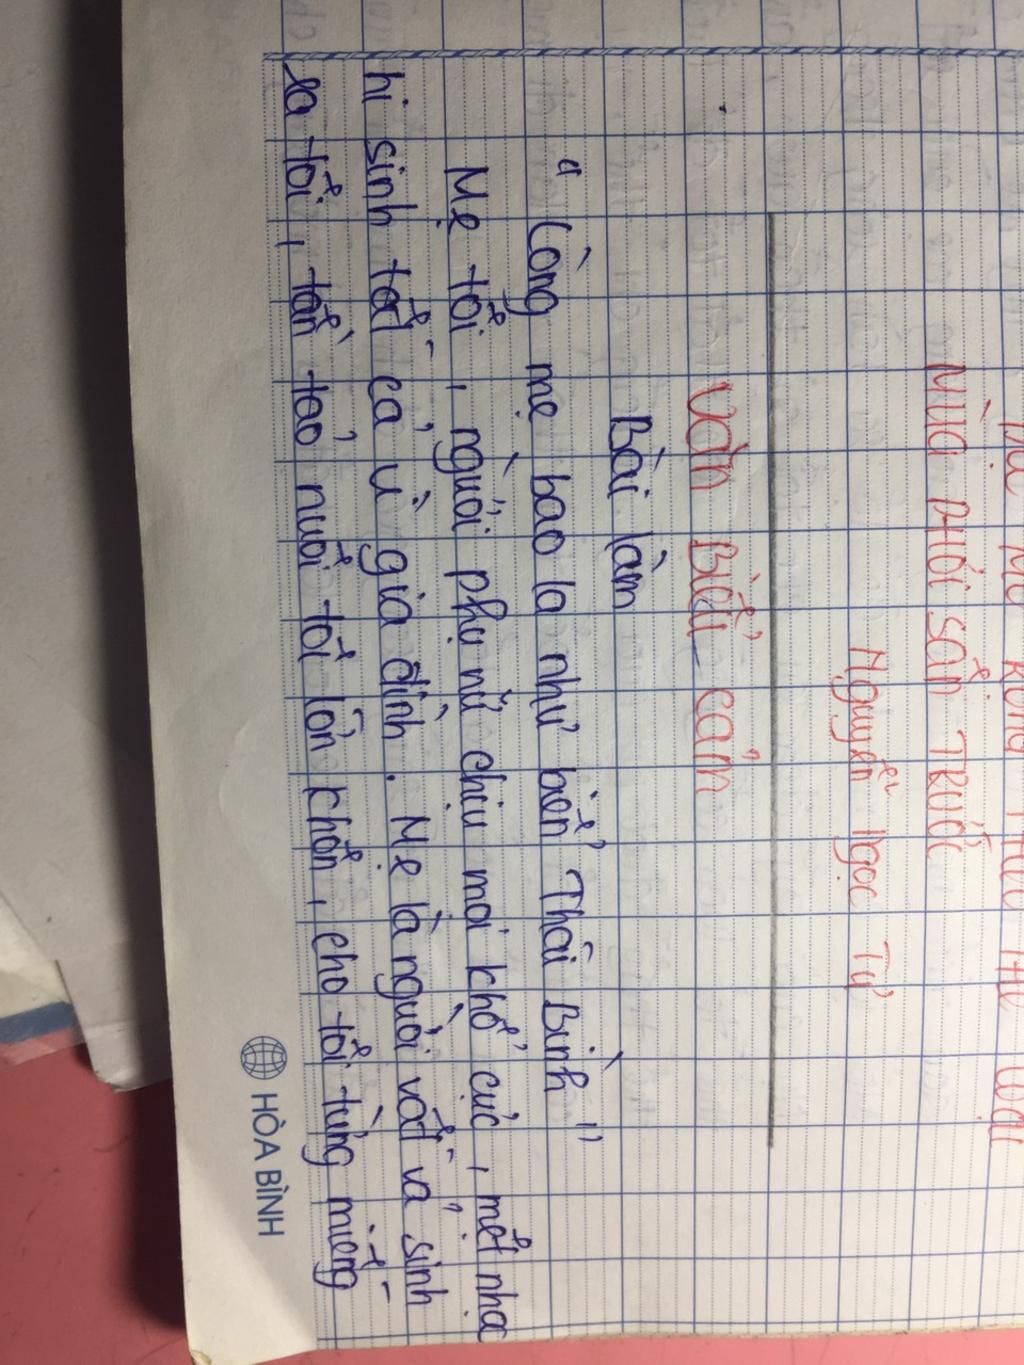 MÙA PHƠI SÂN TRƯỚC
Nguyễn Ngọc Tư
Văn Biểu cảm
Bài làm
“Công mẹ bao la như biển Thái Bình”
Mẹ tôi, người phụ nữ chịu mọi khổ cực, mệt nhọc
hi sinh tất cả vì gia đình. Mẹ là người vất vả sinh
ra tôi, tần tảo nuôi tôi lớn khôn, cho tôi từng miếng
HÒA BÌNH